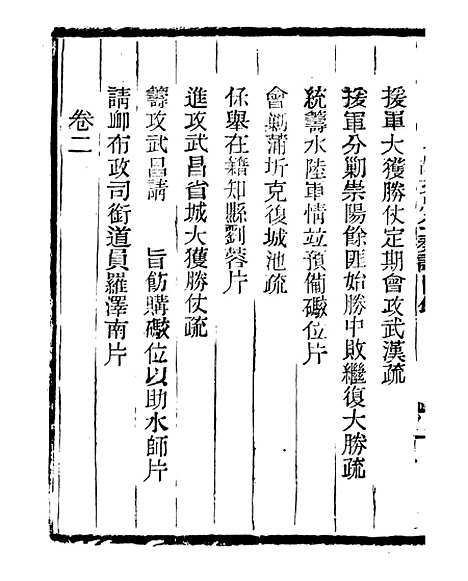 援軍大獲勝仗定期會攻武漢疏
援軍分剿崇陽餘匪始勝中敗繼復大勝疏
統籌水陸軍情並預備礮位片
會剿蒲圻克復城池疏
保舉在籍知縣劉蓉片
進攻武昌省城大獲勝仗疏
籌攻武昌請　旨飭購礮位以助水師片
請卹布政司銜道員羅澤南片
卷二